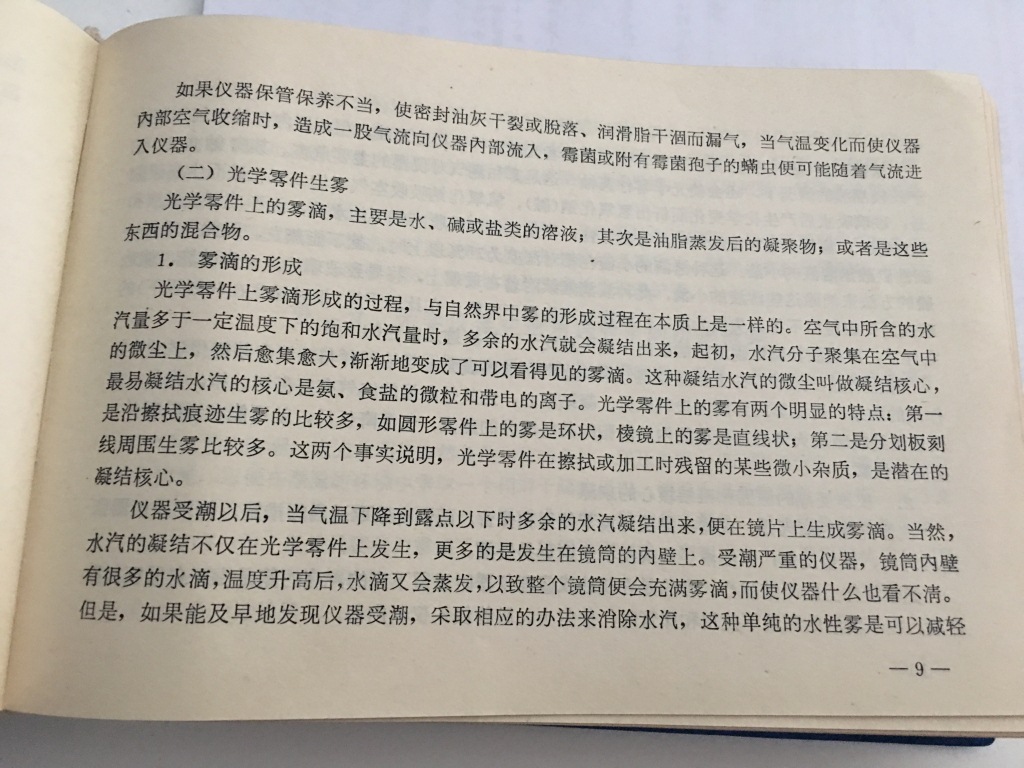 如果仪器保管保养不当，使密封油灰干裂或脱落、润滑脂干涸而漏气，当气温变化而使仪器
内部空气收缩时，造成一股气流向仪器内部流入，霉菌或附有霉菌孢子的螨虫便可能随着气流进
入仪器。
（二）光学零件生雾
光学零件上的雾滴，主要是水、碱或盐类的溶液；其次是油脂蒸发后的凝聚物；或者是这些
东西的混合物。
1．雾滴的形成
光学零件上雾滴形成的过程，与自然界中雾的形成过程在本质上是一样的。空气中所含的水
汽量多于一定温度下的饱和水汽量时，多余的水汽就会凝结出来，起初，水汽分子聚集在空气中
的微尘上，然后愈集愈大，渐渐地变成了可以看得见的雾滴。这种凝结水汽的微尘叫做凝结核心，
最易凝结水汽的核心是氨、食盐的微粒和带电的离子。光学零件上的雾有两个明显的特点：第一
是沿擦拭痕迹生雾的比较多，如圆形零件上的雾是环状，棱镜上的雾是直线状；第二是分划板刻
线周围生雾比较多。这两个事实说明，光学零件在擦拭或加工时残留的某些微小杂质，是潜在的
凝结核心。
仪器受潮以后，当气温下降到露点以下时多余的水汽凝结出来，便在镜片上生成雾滴。当然，
水汽的凝结不仅在光学零件上发生，更多的是发生在镜筒的内壁上。受潮严重的仪器，镜筒内壁
有很多的水滴，温度升高后，水滴又会蒸发，以致整个镜筒便会充满雾滴，而使仪器什么也看不清。
但是，如果能及早地发现仪器受潮，采取相应的办法来消除水汽，这种单纯的水性雾是可以减轻
—9—